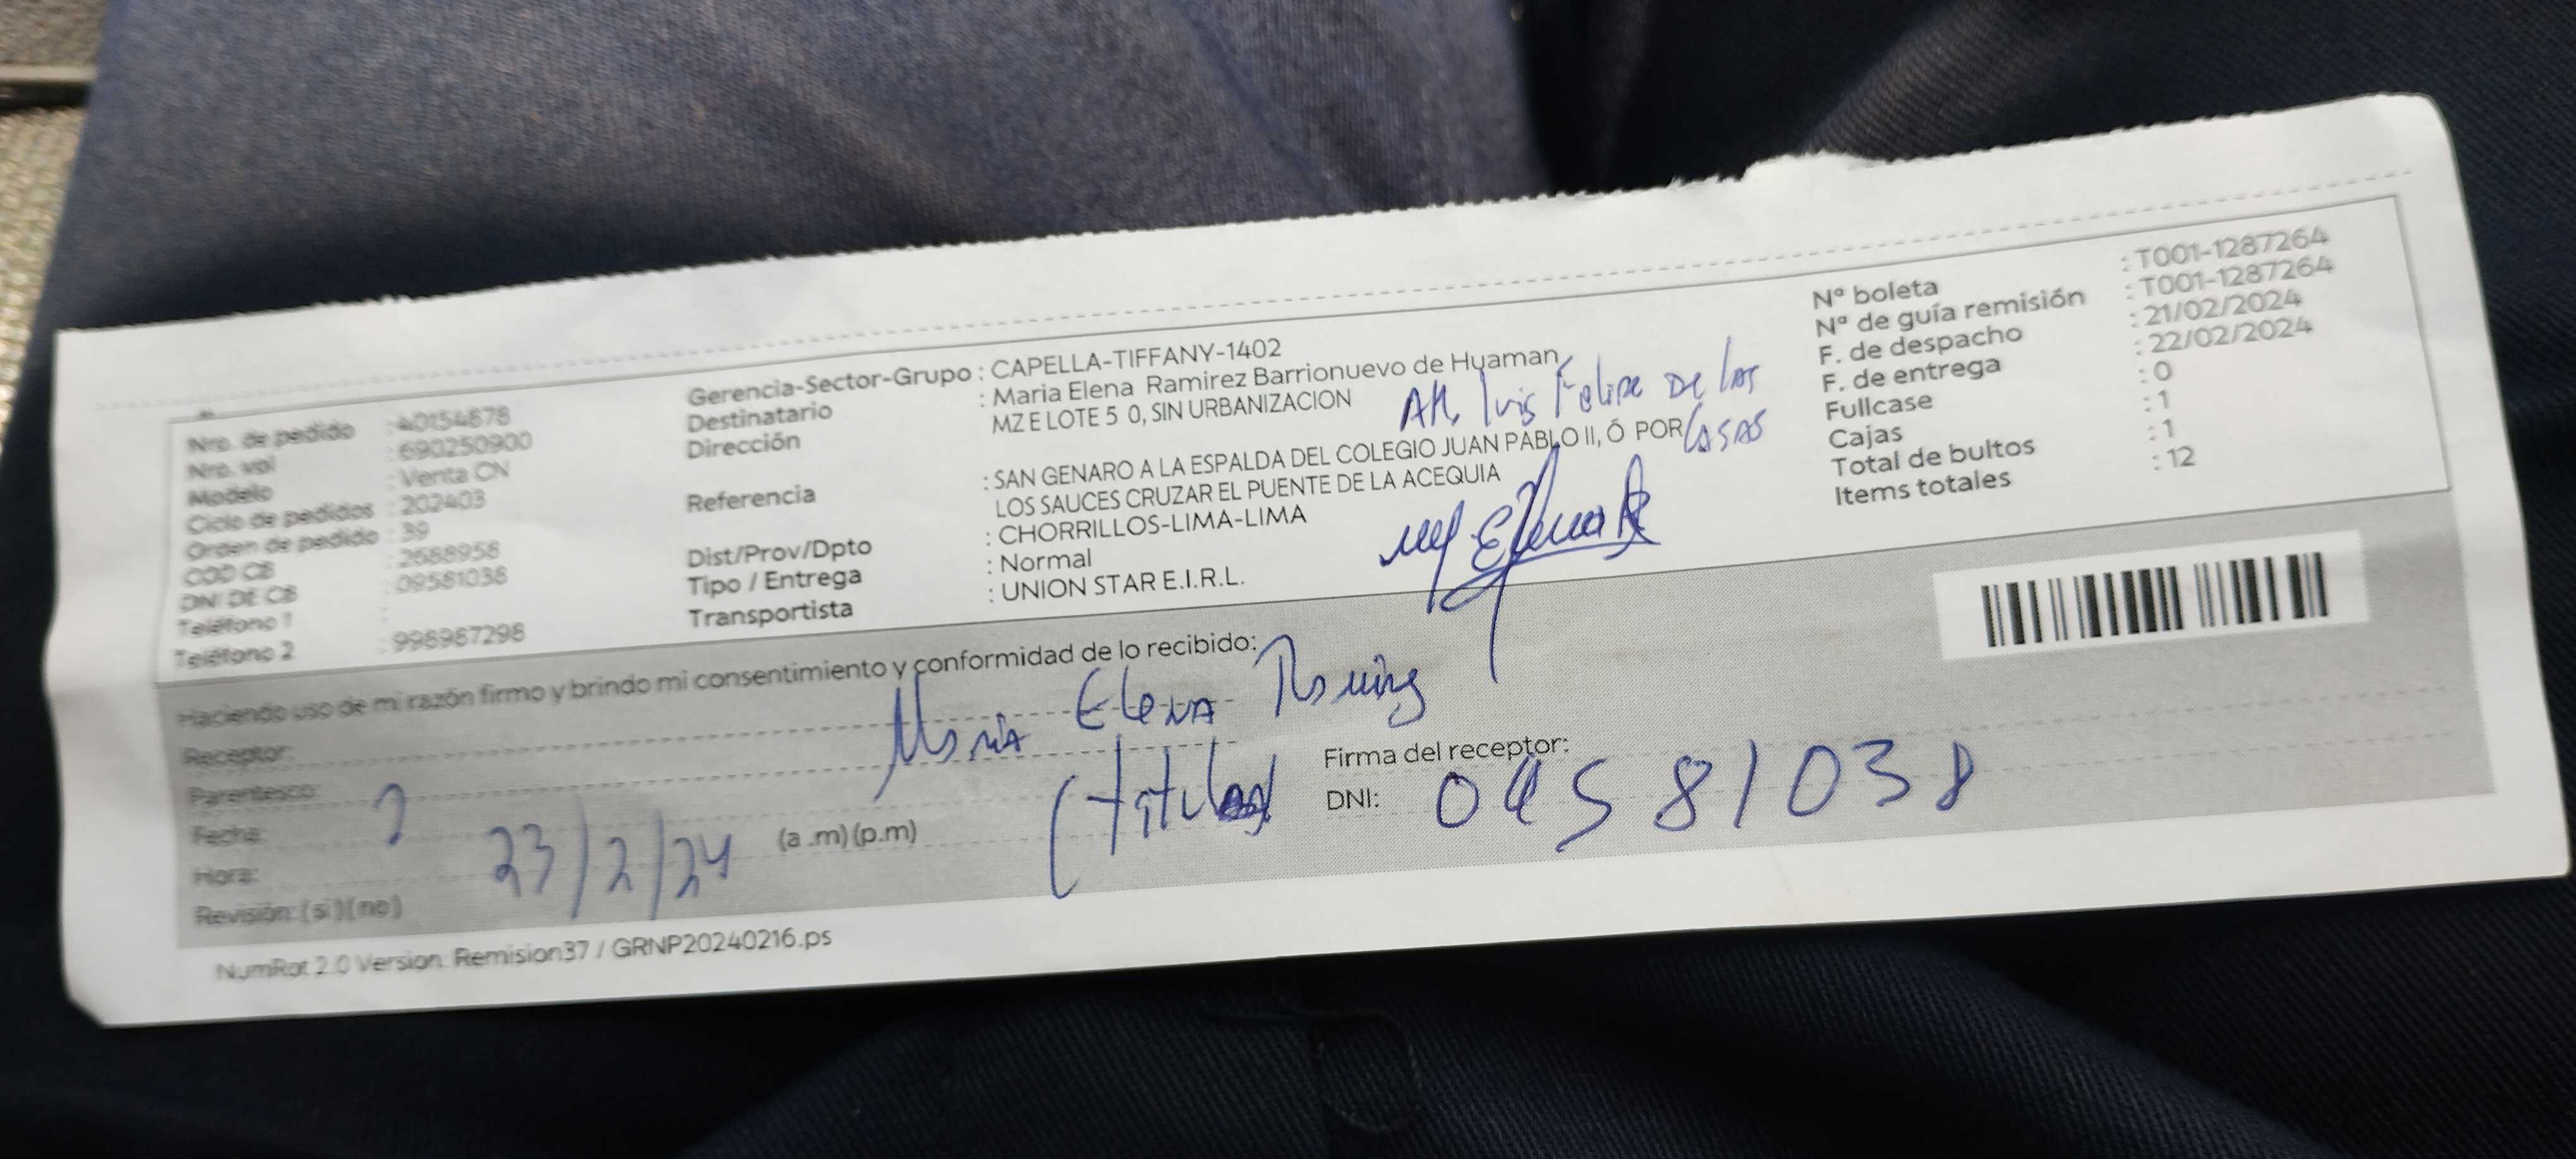 Nro. de pedido : A0154878
Nro. vol : 690250900
Modelo : Venta CN
Ciclo de pedidos : 202403
Orden de pedido : 39
COD CB : 2688958
DNI DE CB : 09581038
Teléfono 1 :
Teléfono 2 : 998987298
Gerencia-Sector-Grupo : CAPELLA-TIFFANY-1402
Destinatario : Maria Elena Ramirez Barrionuevo de Huaman
Dirección MZ E LOTE 5 0, SIN URBANIZACION
AH. Luis Felipe De las
Casas
Referencia : SAN GENARO A LA ESPALDA DEL COLEGIO JUAN PABLO II, Ó POR
LOS SAUCES CRUZAR EL PUENTE DE LA ACEQUIA
Dist/Prov/Dpto : CHORRILLOS-LIMA-LIMA
Tipo / Entrega : Normal
Transportista : UNION STAR E.I.R.L.
Nº boleta : T001-1287264
Nº de guía remisión : T001-1287264
F. de despacho : 21/02/2024
F. de entrega : 22/02/2024
Fullcase : 0
Cajas : 1
Total de bultos : 1
Items totales : 12
Haciendo uso de mi razón firmo y brindo mi consentimiento y conformidad de lo recibido:
Receptor: Maria Elena Ramirez
Parentesco: (titular
Fecha: 23/2/24
Hora: (a .m) (p.m)
Revisión: (si) (no)
Firma del receptor:
DNI: 09581038
NumRot 2.0 Version: Remision37 / GRNP20240216.ps